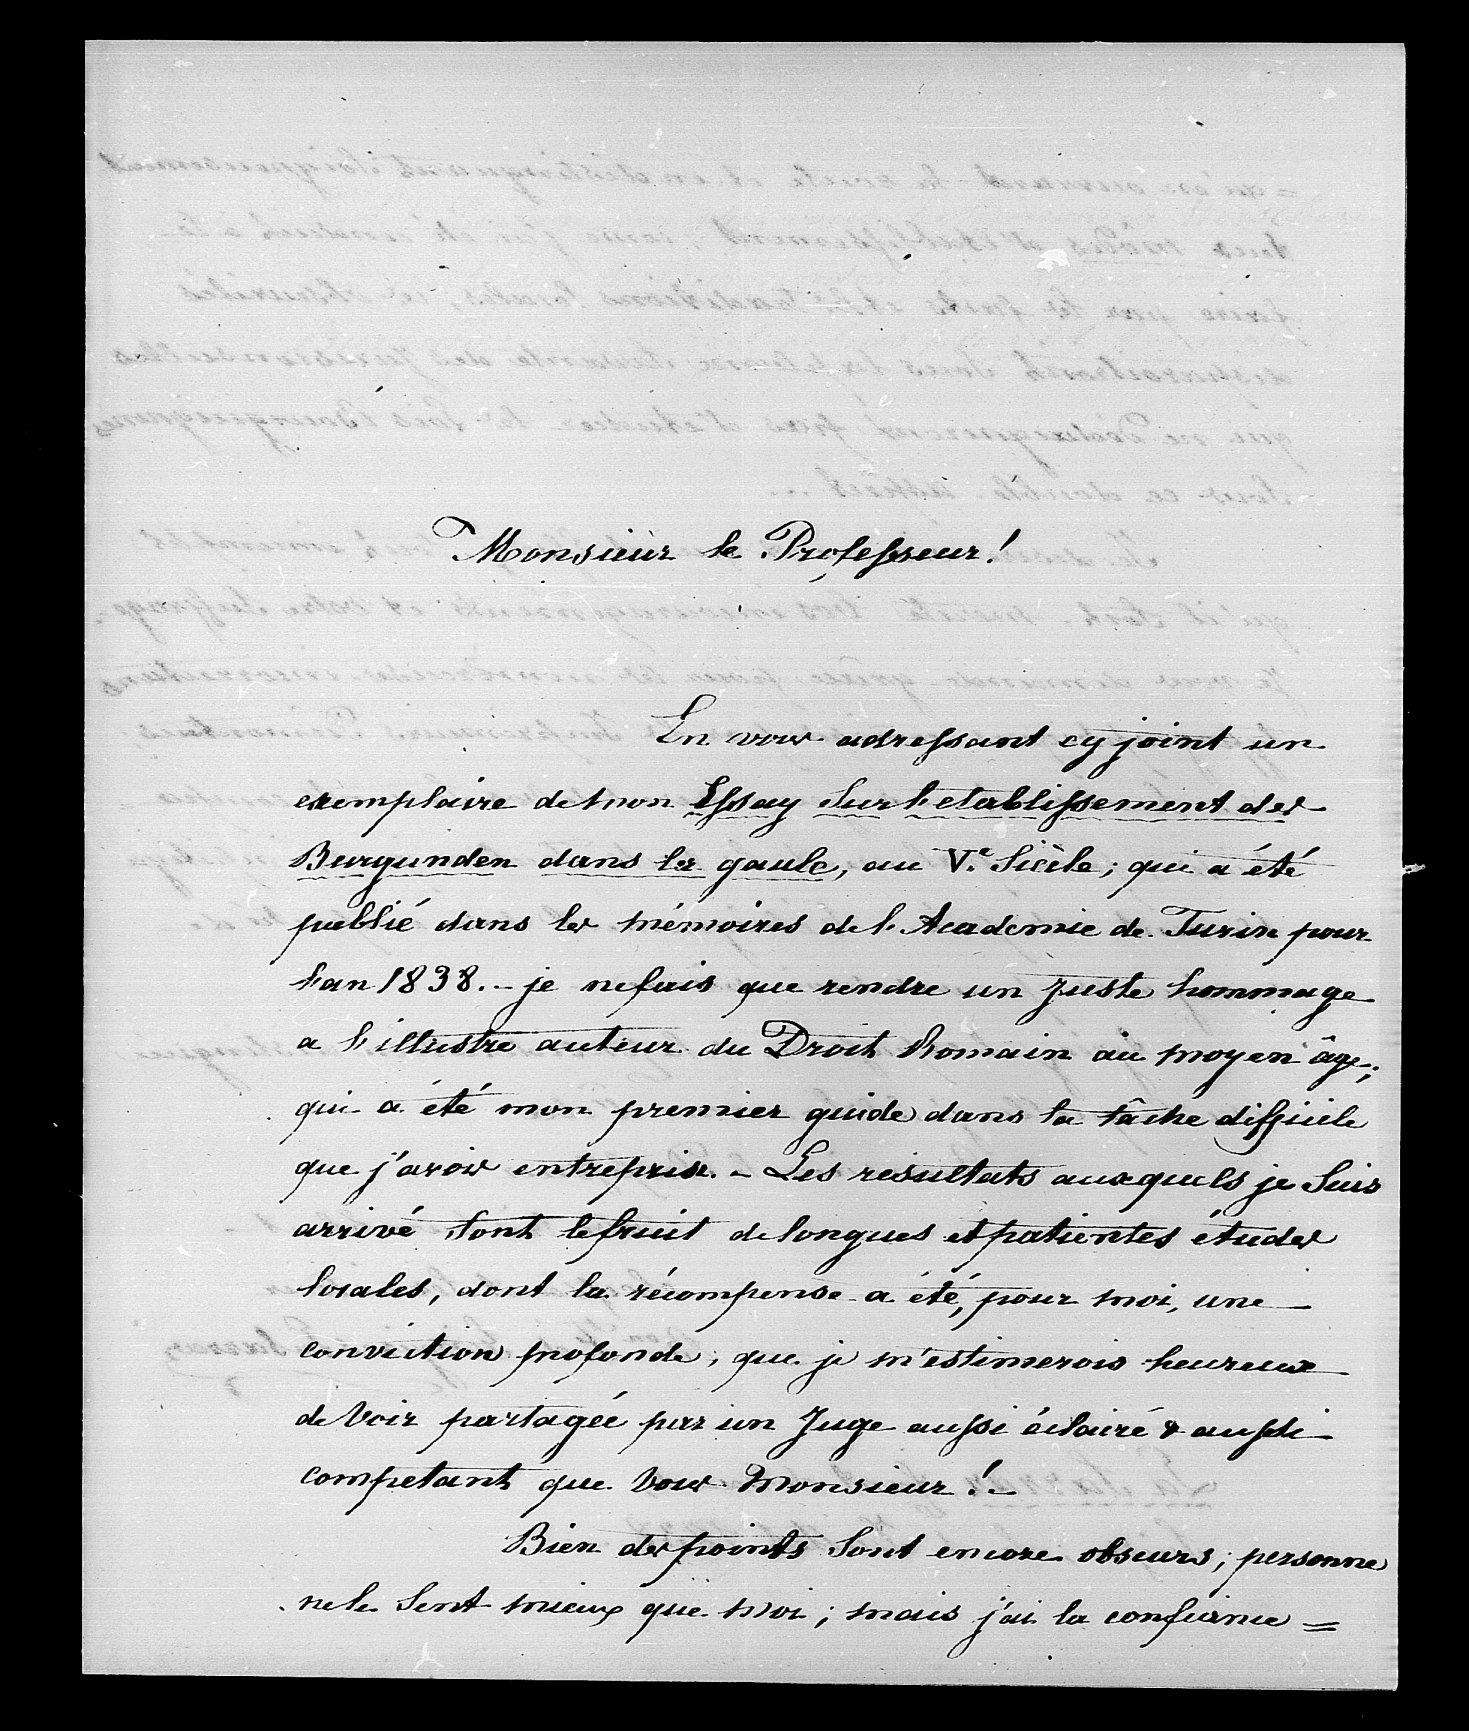 Monsieur le Professeur!
En vous adressant cy joint un
exemplaire de mon Essay sur l'etablissement des
Burgunden dans la gaule, au V.e Siècle; qui a été
publié dans les mémoires de l'Academie de Turin pour
l'an 1838. – je ne fais que rendre un juste hommage
a l'illustre auteur du Droit Romain au moyen âge;
qui a été mon premier guide dans la tâche difficile
que j'avois entreprise. – Les resultats auxquels je suis
arrivé sont le fruit de longues et patientes études
locales, dont la récompense a été, pour moi, une
conviction profonde, que je m'estimerois heureux
de voir partagée par un Juge aussi éclairé & aussi
competant que vous Monsieur! –
Bien des points sont encore obscurs; personne
ne le sent mieux que moi; mais j'ai la confiance =